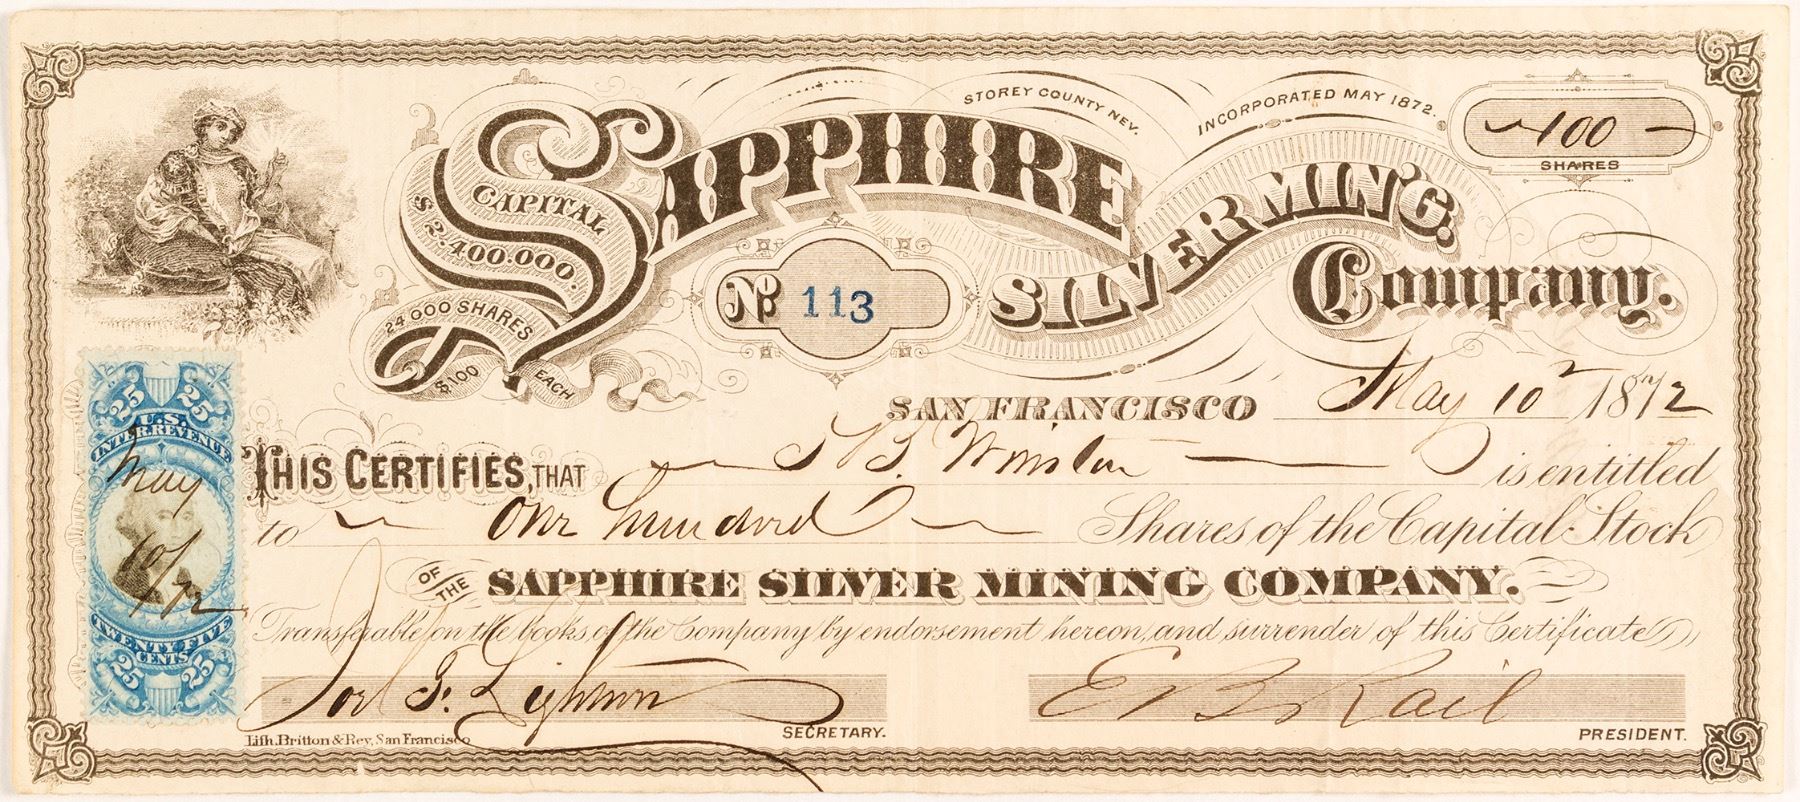 STOREY COUNTY NEV.
INCORPORATED MAY 1872.
100
SHARES
SAPPHIRE
SILVER MIN'G.
Company.
CAPITAL
$2.400.000.
24 000 SHARES
$100 EACH
No. 113
SAN FRANCISCO May 10 1872
THIS CERTIFIES, THAT Winston is entitled
to One hundred Shares of the Capital Stock
OF THE SAPPHIRE SILVER MINING COMPANY.
Transferable on the books of the Company by endorsement hereon and surrender of this Certificate
Joel F. Lightner
SECRETARY.
E B Rail
PRESIDENT.
Lith. Britton & Rey, San Francisco
25 25
U.S.
INTER. REVENUE
May
10/
/72
TWENTY FIVE
CENTS
25 25